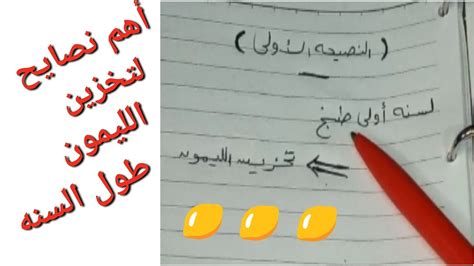 أهم نصايح
لتخزين
الليمون
طول السنه
(النصيحه الأولى)
لسنه أولى طبخ
تخزين الليمون